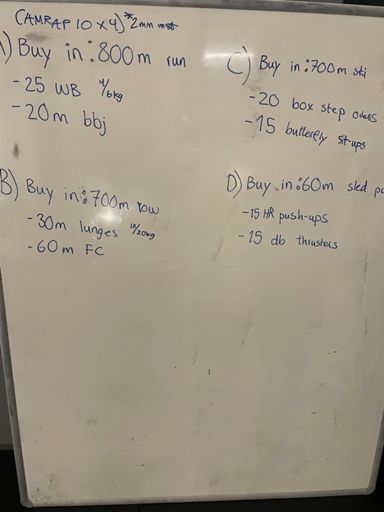 (AMRAP 10 x 4) * 2min rest
A) Buy in: 800m run
- 25 WB 4/6kg
- 20m bbj
B) Buy in: 700m row
- 30m lunges 10/20kg
- 60m FC
C) Buy in: 700m ski
- 20 box step overs
- 15 butterfly sit-ups
D) Buy in: 60m sled
- 15 HR push-ups
- 15 db thrusters